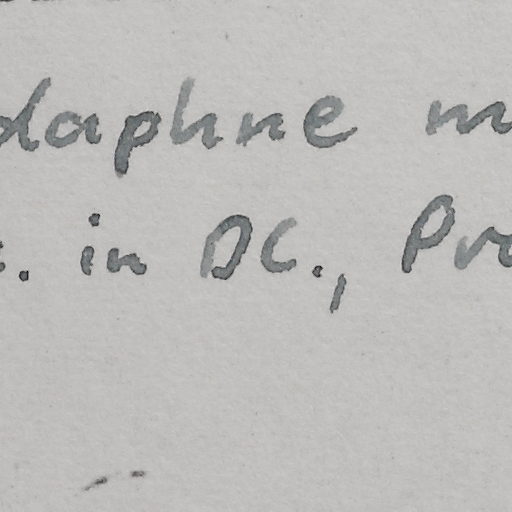 daphne m
. in DC., Pro